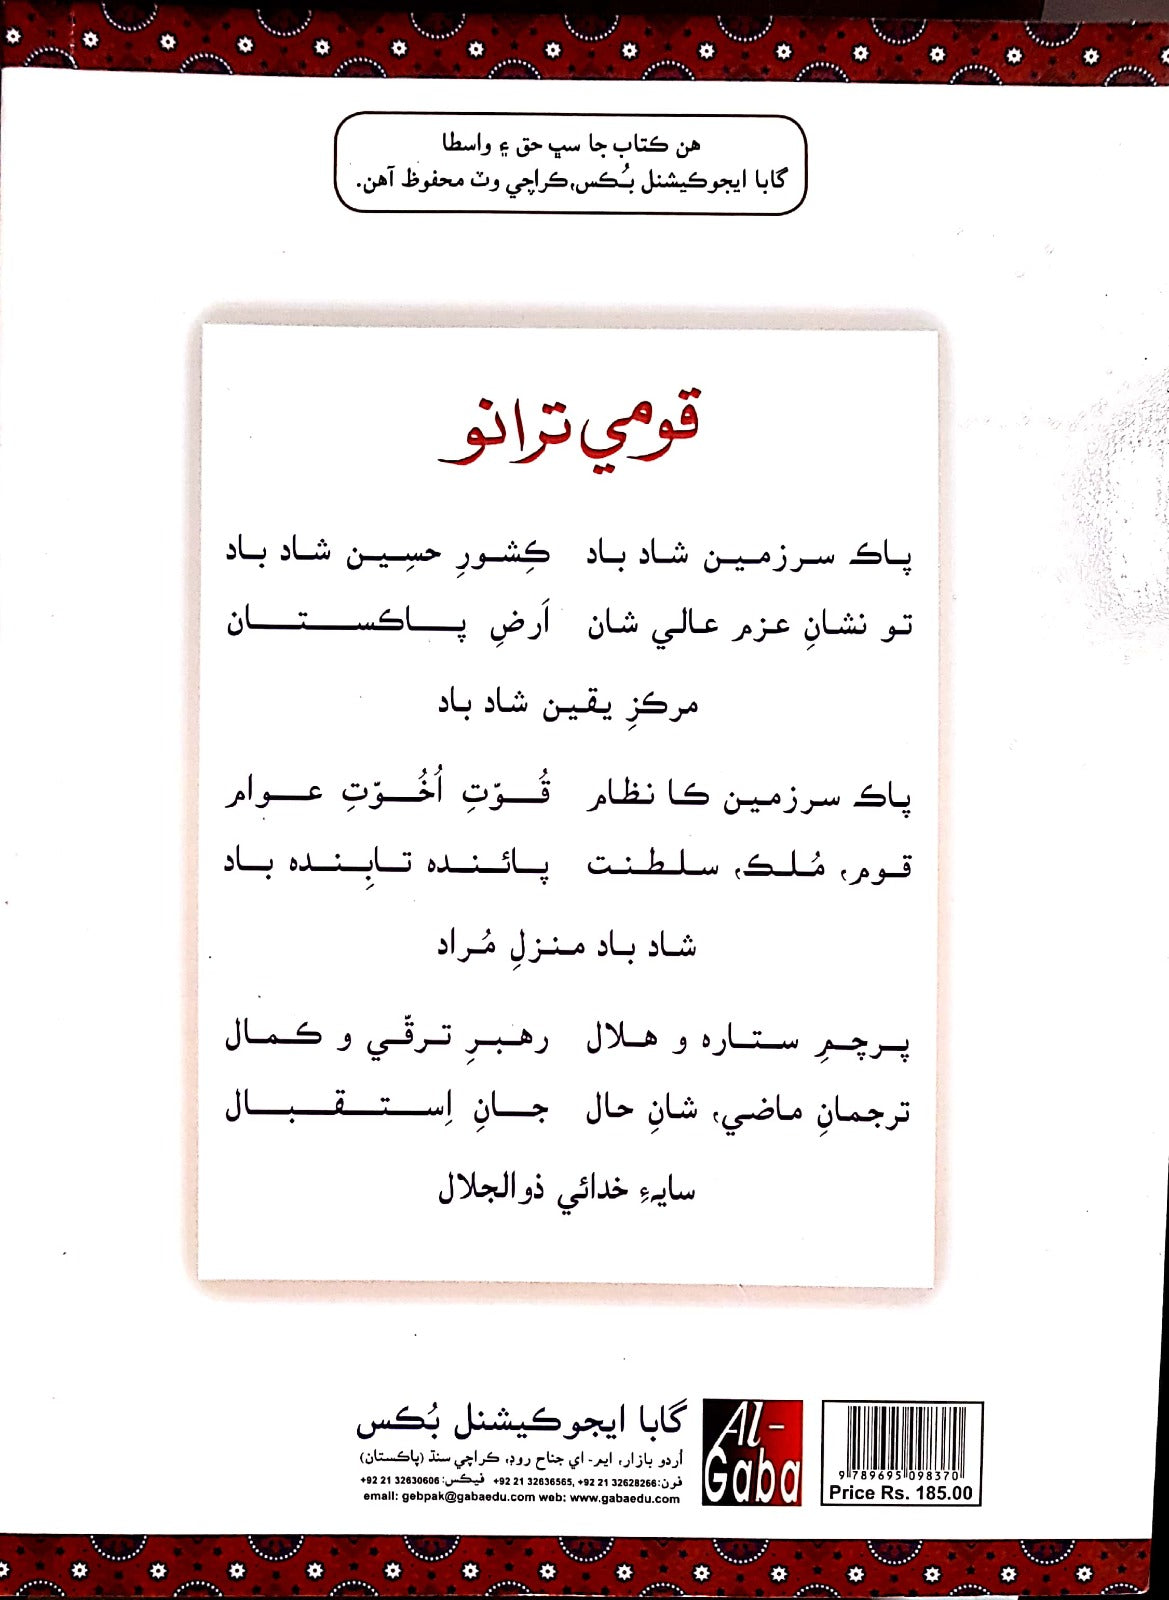 هن ڪتاب جا سڀ حق ۽ واسطا
گابا ايجوڪيشنل بُڪس، ڪراچي وٽ محفوظ آهن.
قومي ترانو
پاڪ سرزمين شاد باد ڪِشورِ حسِين شاد باد
تو نشانِ عزم عالي شان اَرضِ پاڪستان
مرڪزِ يقين شاد باد
پاڪ سرزمين ڪا نظام قُوّتِ اُخُوّتِ عوام
قوم، مُلڪ، سلطنت پائنده تابِنده باد
شاد باد منزلِ مُراد
پرچمِ ستاره و هلال رهبرِ ترقّي و ڪمال
ترجمانِ ماضي، شانِ حال جانِ اِستقبال
سايهءِ خدائي ذوالجلال
گابا ايجوڪيشنل بُڪس
اُردو بازار، ايم- اي جناح روڊ، ڪراچي سنڌ (پاڪستان)
فون: +92 21 32636565, +92 21 32628266 فيڪس: +92 21 32630606
email: gebpak@gabaedu.com web: www.gabaedu.com
Al-
Gaba
9 789695 098370
Price Rs. 185.00